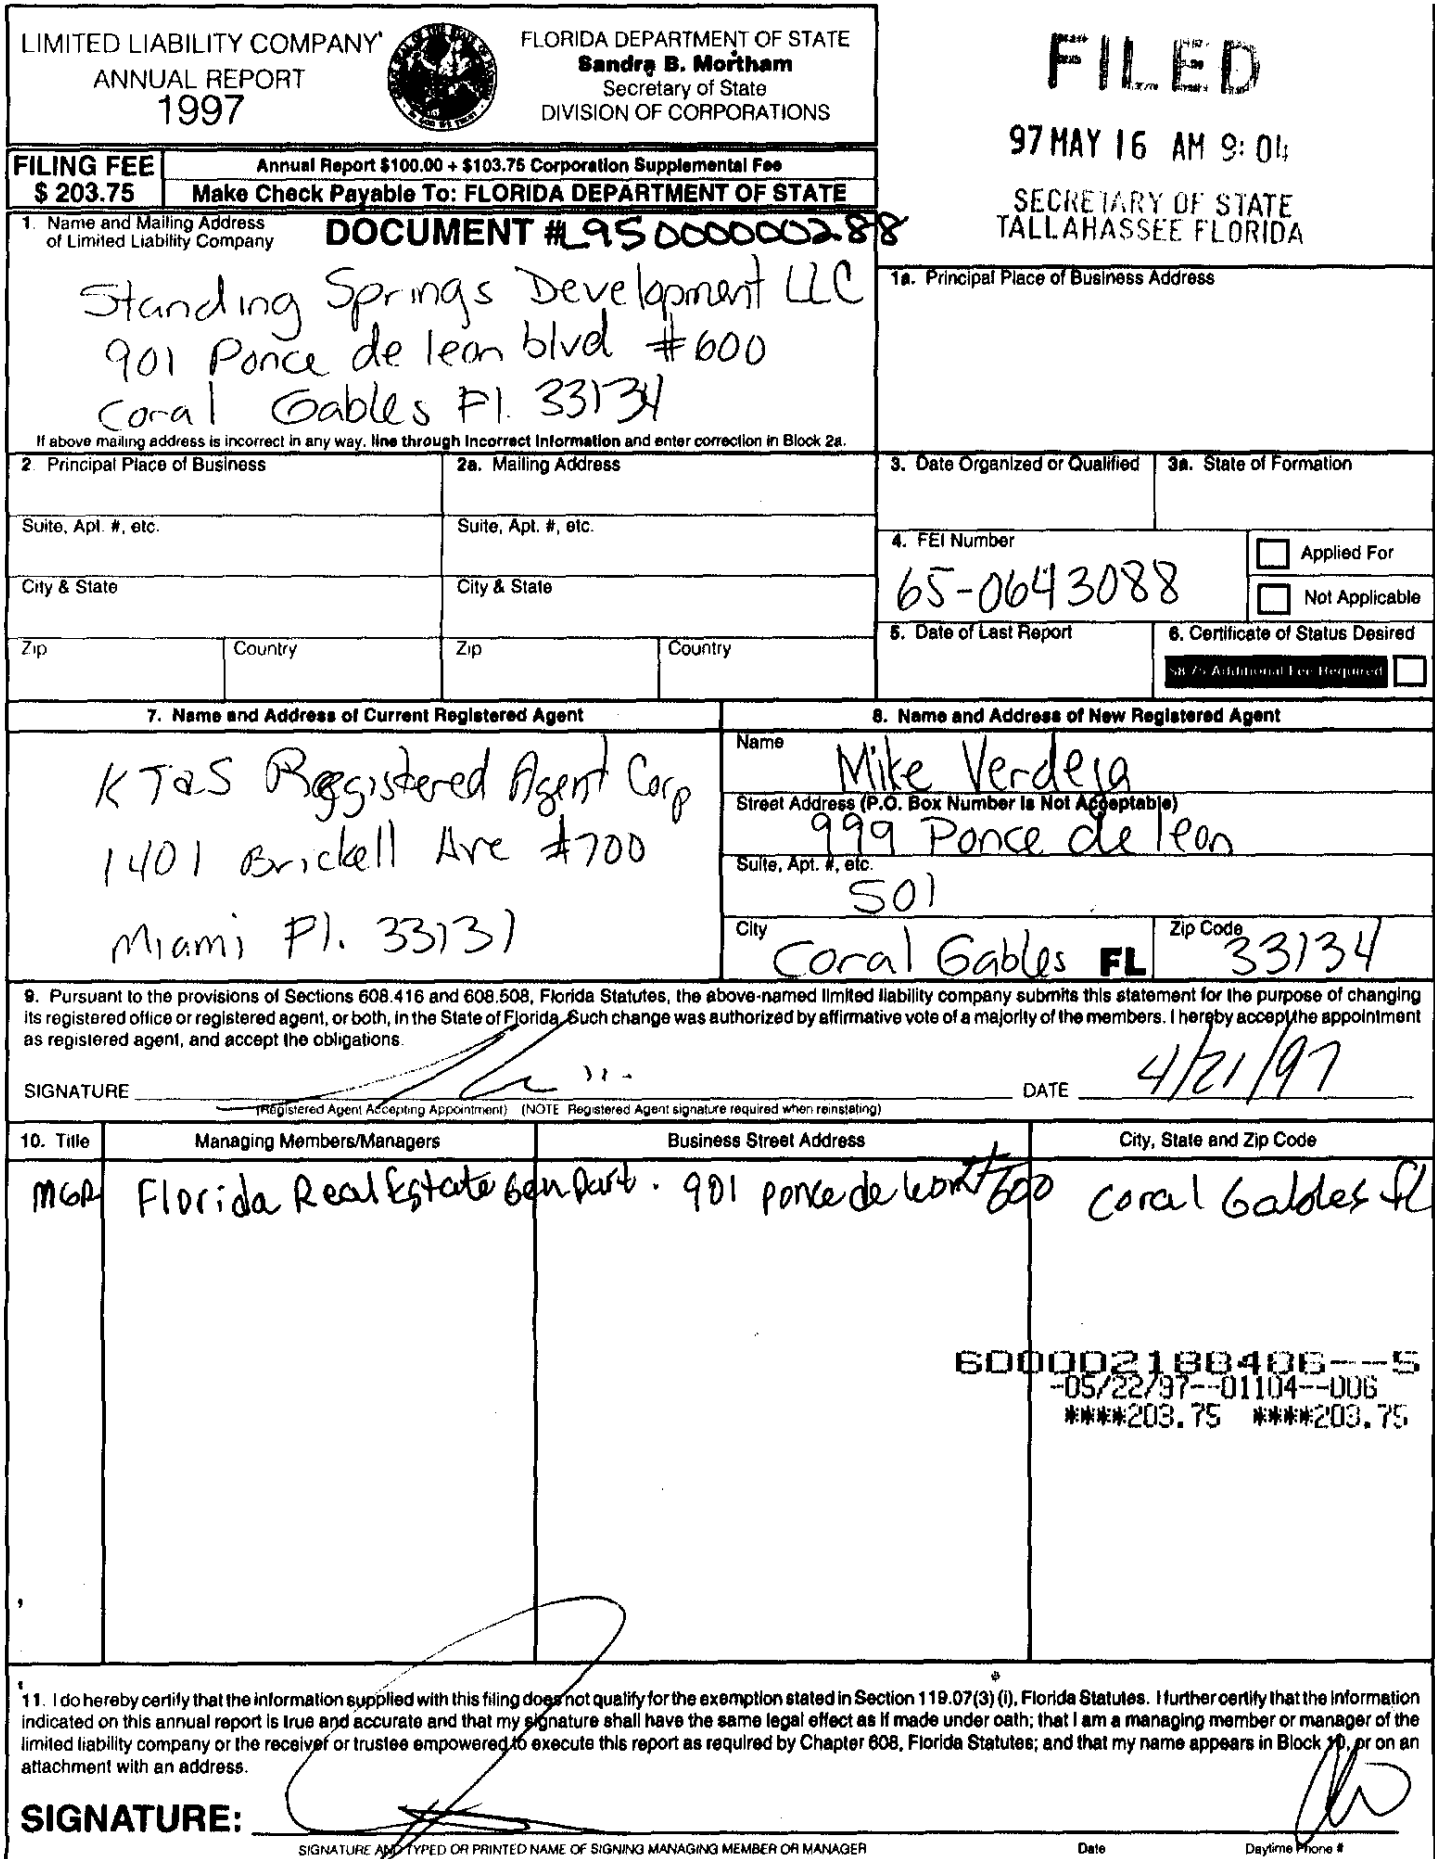 LIMITED LIABILITY COMPANY
ANNUAL REPORT
1997
FLORIDA DEPARTMENT OF STATE
Sandra B. Mortham
Secretary of State
DIVISION OF CORPORATIONS
FILED
97 MAY 16 AM 9:04
SECRETARY OF STATE
TALLAHASSEE FLORIDA
FILING FEE
$ 203.75
Annual Report $100.00 + $103.75 Corporation Supplemental Fee
Make Check Payable To: FLORIDA DEPARTMENT OF STATE
1. Name and Mailing Address
of Limited Liability Company
DOCUMENT # L95000000288
Standing Springs Development LLC
901 Ponce de leon blvd #600
Coral Gables Fl. 33134
If above mailing address is incorrect in any way, line through incorrect information and enter correction in Block 2a.
1a. Principal Place of Business Address
2. Principal Place of Business
2a. Mailing Address
3. Date Organized or Qualified
3a. State of Formation
Suite, Apt. #, etc.
Suite, Apt. #, etc.
4. FEI Number
65-0643088
Applied For
Not Applicable
City & State
City & State
5. Date of Last Report
6. Certificate of Status Desired
$8.75 Additional Fee Required
Zip
Country
Zip
Country
7. Name and Address of Current Registered Agent
KT&S Registered Agent Corp
1401 Brickell Ave #700
Miami Fl. 33131
8. Name and Address of New Registered Agent
Name
Mike Verdeja
Street Address (P.O. Box Number Is Not Acceptable)
999 Ponce de leon
Suite, Apt. #, etc.
501
City
Coral Gables FL
Zip Code
33134
9. Pursuant to the provisions of Sections 608.416 and 608.508, Florida Statutes, the above-named limited liability company submits this statement for the purpose of changing
its registered office or registered agent, or both, in the State of Florida. Such change was authorized by affirmative vote of a majority of the members. I hereby accept the appointment
as registered agent, and accept the obligations.
SIGNATURE
DATE 4/21/97
(Registered Agent Accepting Appointment) (NOTE Registered Agent signature required when reinstating)
10. Title
Managing Members/Managers
Business Street Address
City, State and Zip Code
MGR
Florida Real Estate Gen Part.
901 ponce de leon #600
Coral Gables fl
600002188406---5
-05/22/97--01104--006
****203.75 ****203.75
11. I do hereby certify that the information supplied with this filing does not qualify for the exemption stated in Section 119.07(3) (i), Florida Statutes. I further certify that the information
indicated on this annual report is true and accurate and that my signature shall have the same legal effect as if made under oath; that I am a managing member or manager of the
limited liability company or the receiver or trustee empowered to execute this report as required by Chapter 608, Florida Statutes; and that my name appears in Block 10, or on an
attachment with an address.
SIGNATURE:
SIGNATURE AND TYPED OR PRINTED NAME OF SIGNING MANAGING MEMBER OR MANAGER
Date
Daytime Phone #